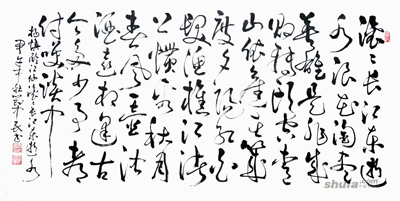 滚滚长江东逝
水浪花淘尽
英雄是非成
败转头空青
山依旧在几
度夕阳红白
发渔樵江渚
上惯看秋月
春风一壶浊
酒喜相逢古
今多少事都
付笑谈中
杨慎词临江仙滚滚长江东逝水
甲午年秋